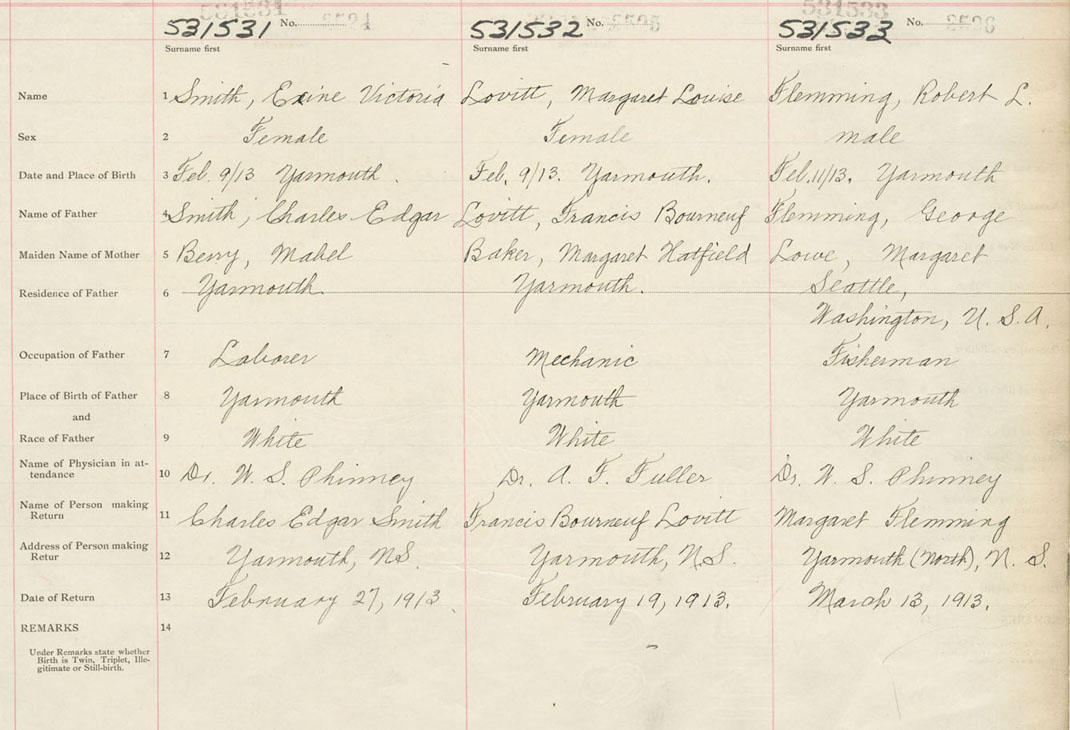 531531 No. 2524 531532 No. 2525 531533 No. 2526
Surname first Surname first Surname first
Name 1 Smith, Exine Victoria Lovitt, Margaret Louise Flemming, Robert L.
Sex 2 Female Female male
Date and Place of Birth 3 Feb. 9/13 Yarmouth. Feb. 9/13. Yarmouth. Feb. 11/13. Yarmouth
Name of Father 4 Smith, Charles Edgar Lovitt, Francis Bourneuf Flemming, George
Maiden Name of Mother 5 Berry, Mabel Baker, Margaret Hatfield Lowe, Margaret
Residence of Father 6 Yarmouth. Yarmouth. Seattle,
Washington, U. S. A.
Occupation of Father 7 Laborer Mechanic Fisherman
Place of Birth of Father 8 Yarmouth Yarmouth Yarmouth
and
Race of Father 9 White White White
Name of Physician in at-
tendance 10 Dr. W. S. Phinney Dr. A. F. Fuller Dr. W. S. Phinney
Name of Person making
Return 11 Charles Edgar Smith Francis Bourneuf Lovitt Margaret Flemming
Address of Person making
Retur 12 Yarmouth, N.S. Yarmouth, N.S. Yarmouth (North), N. S.
Date of Return 13 February 27, 1913. February 19, 1913. March 13, 1913.
REMARKS 14
Under Remarks state whether
Birth is Twin, Triplet, Ille-
gitimate or Still-birth.